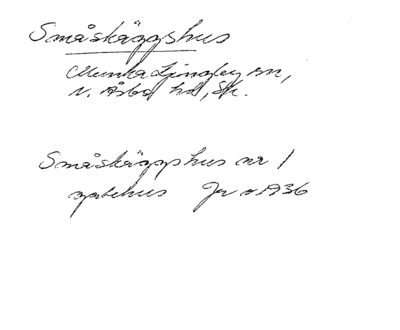 Småskäggshus
Munka Ljungby sn,
N. Åsbo hd, Sk.
Småskäggshus nr 1
gatehus Jr a 1936